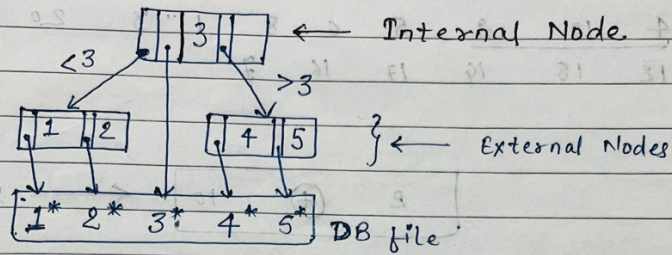 3 ← Internal Node
<3 >3
1 2 4 5 } ← External Nodes
1* 2* 3* 4* 5* DB file